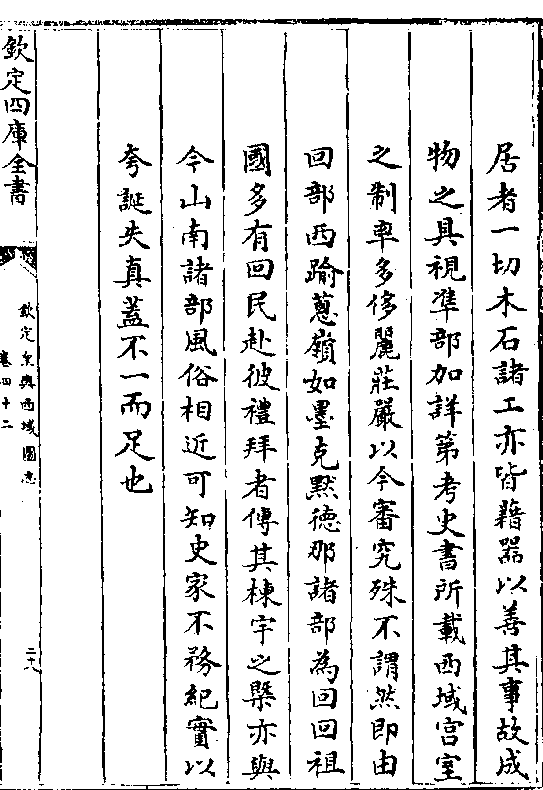 居者一切木石諸工亦皆藉器以善其事故成
物之具視準部加詳第考史書所載西域宫室
之制率多侈麗莊嚴以今審究殊不謂然即由
回部西踰蔥嶺如墨克默德那諸部為回回祖
國多有回民赴彼禮拜者傳其棟宇之槩亦與
今山南諸部風俗相近可知史家不務紀實以
夸誕失真蓋不一而足也
欽定四庫全書
欽定皇輿西域圖志
卷四十二
二十八